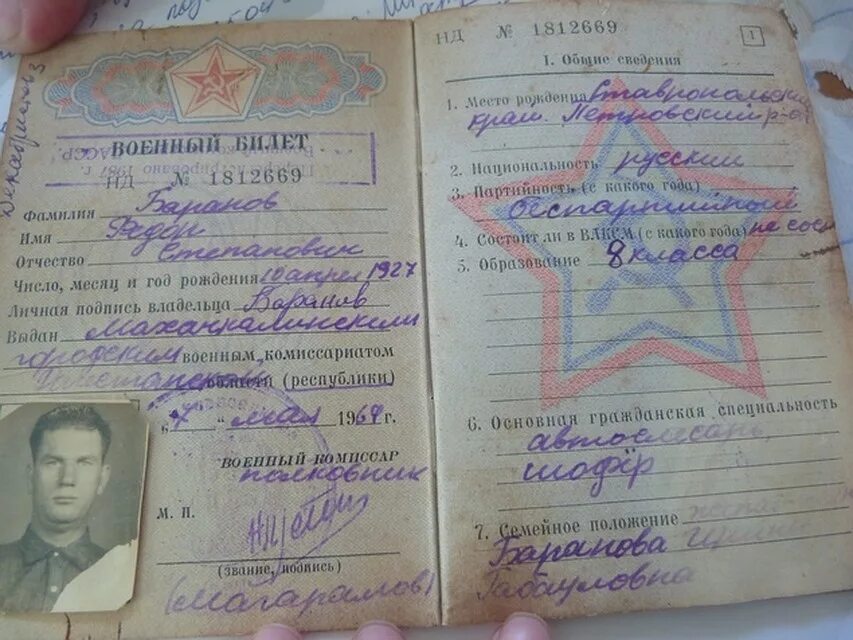 ВОЕННЫЙ БИЛЕТ
НД № 1812669
Фамилия Баранов
Имя Федор
Отчество Степанович
Число, месяц и год рождения 10 апрел 1927
Личная подпись владельца Баранов
Выдан Махачкалинским
городским военным комиссариатом
области (республики)
„7“ мая 1964 г.
ВОЕННЫЙ КОМИССАР
полковник
М. П.
(звание, подпись)
(Магарамов)
НД № 1812669
1
I. Общие сведения
1. Место рождения Ставропольский
край. Петровский р-он
2. Национальность русский
3. Партийность (с какого года)
беспартийный
4. Состоит ли в ВЛКСМ (с какого года) не сос
5. Образование 8 класса
6. Основная гражданская специальность
автослесарь
шофёр
7. Семейное положение
Баранова